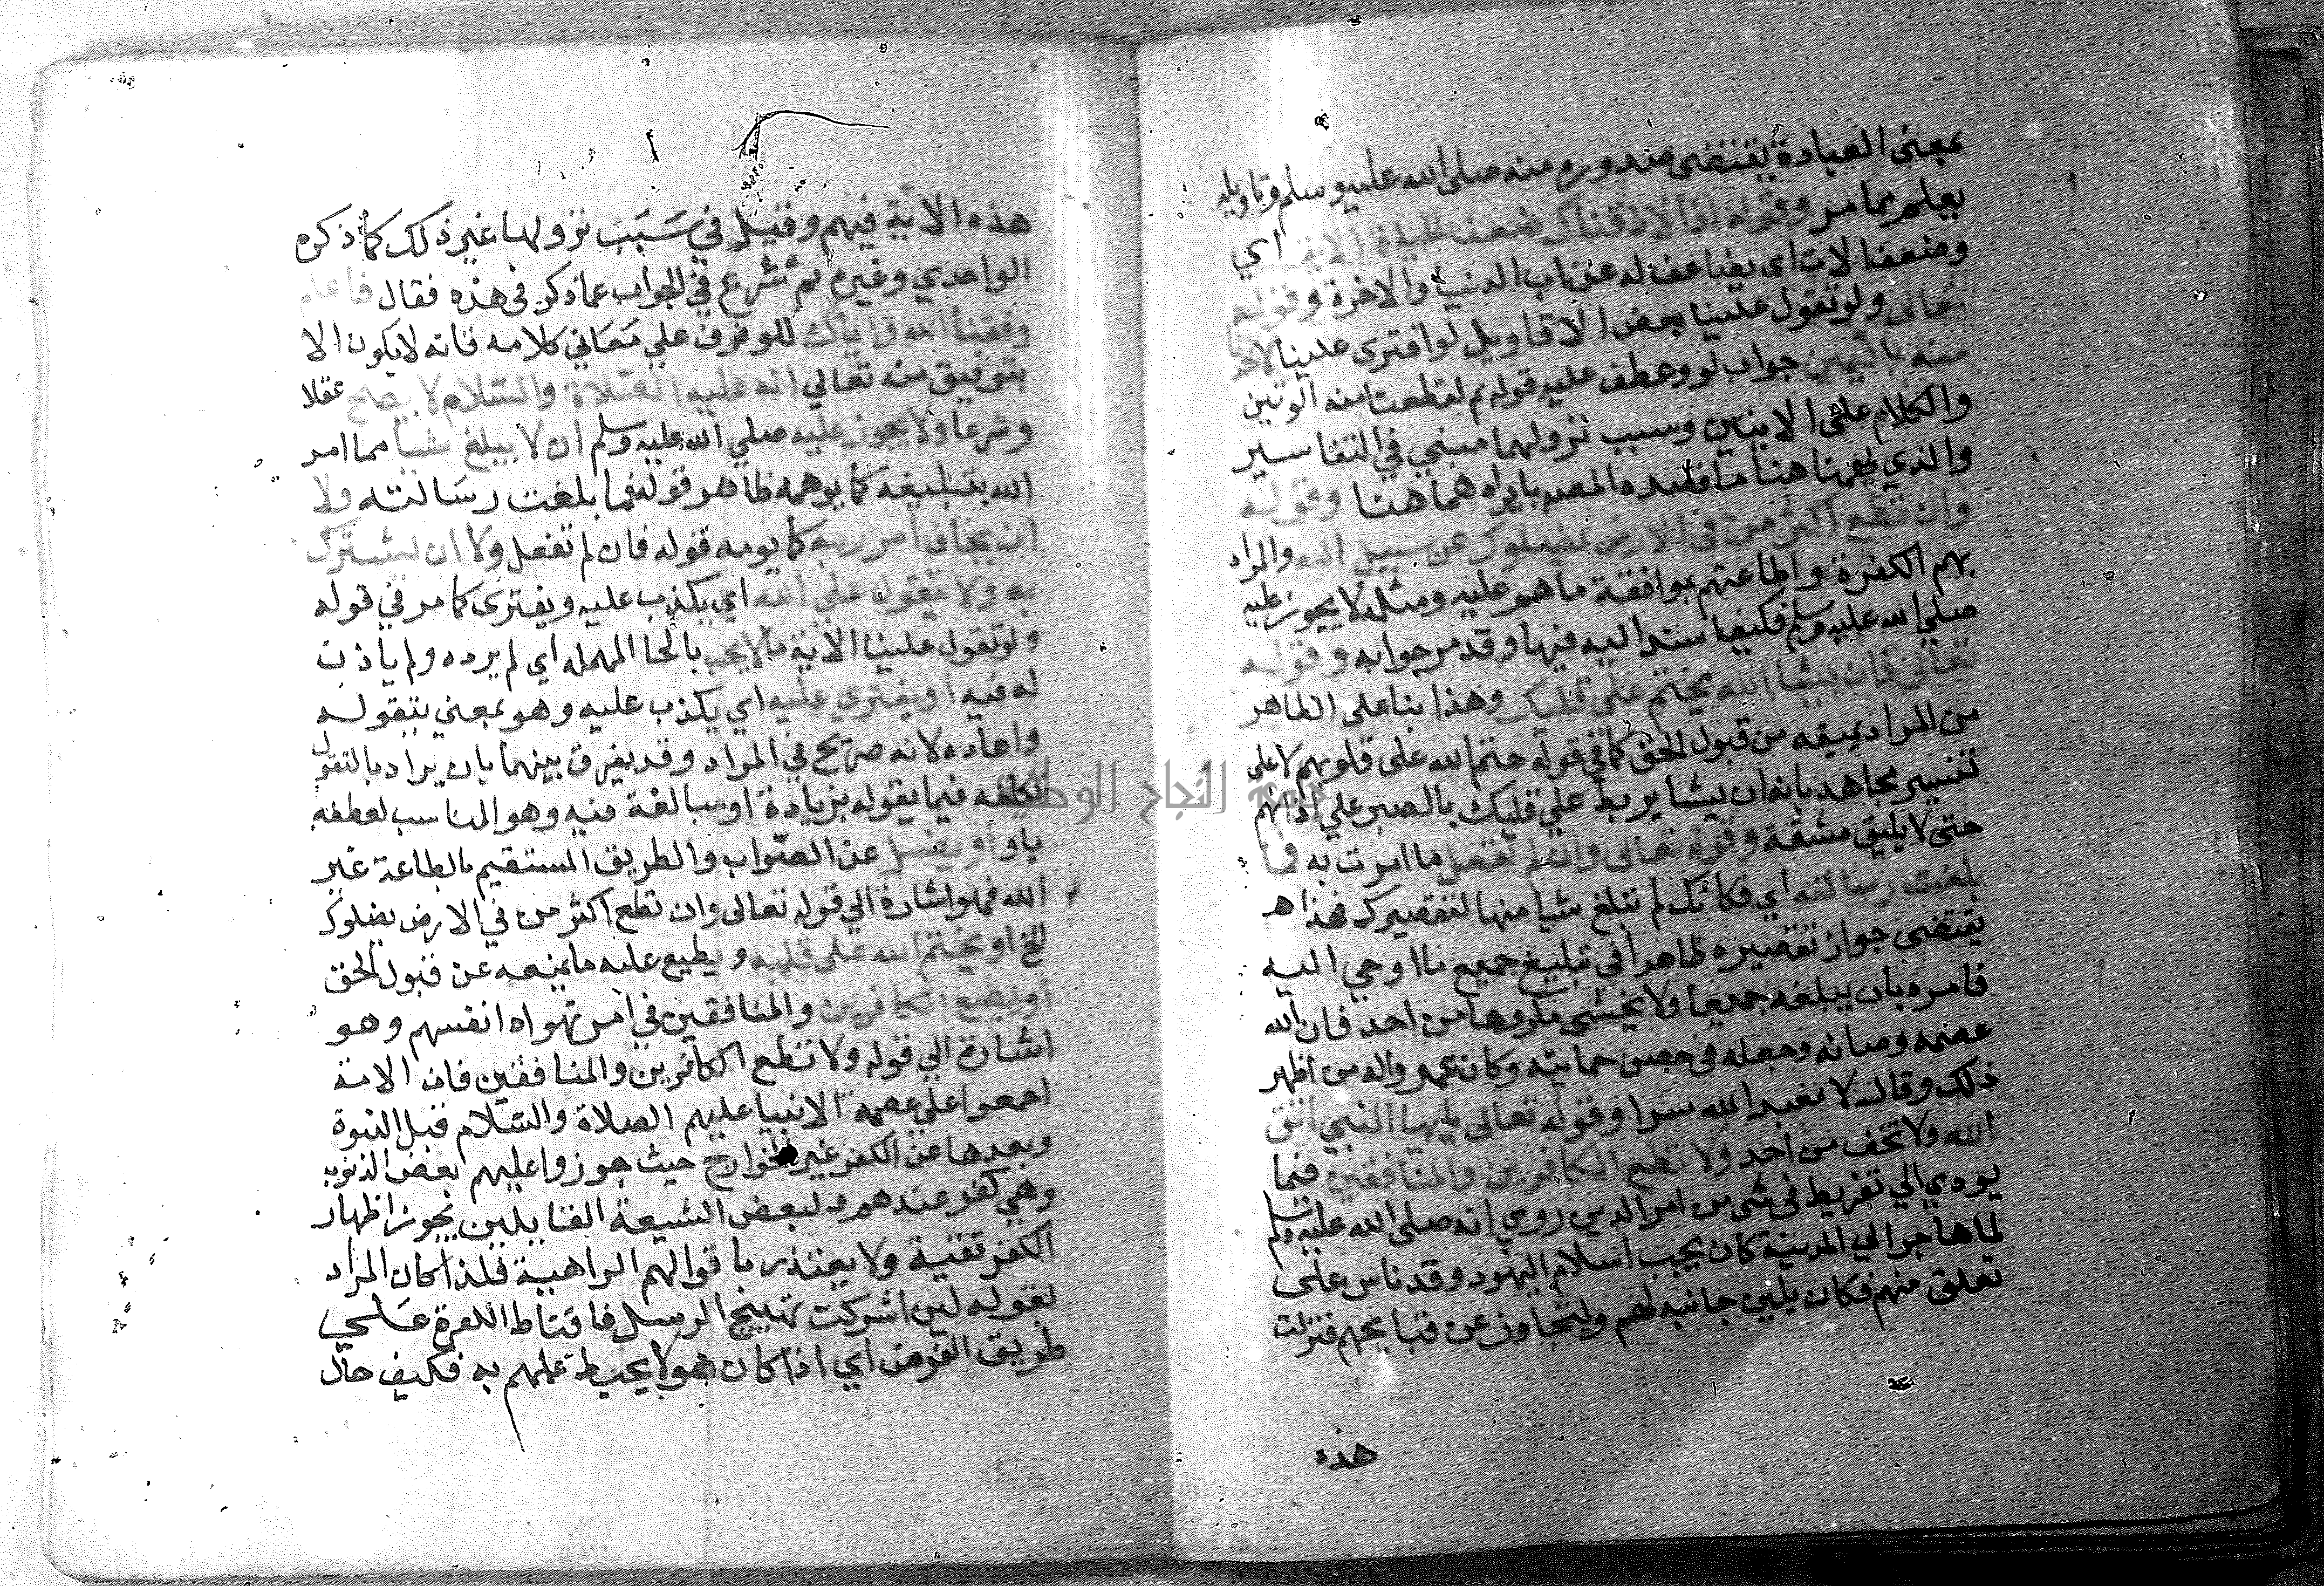 بمعنى العبادة يقتضى صدوره منه صلى الله عليه وسلم وتاويله
يعلم مما مر وقوله اذا لاذقناك ضعف الحياة الاية اي
وضعف الات اى يضاعف له عذاب الدنيا والاخرة وقوله
تعالى ولو تقول علينا بعض الاقاويل لو افترى علينا لاخذنا
منه باليمين جواب لو وعطف عليه قوله ثم لقطعنا منه الوتين
والكلام على الايتين وسبب نزولهما مبني في التفاسير
والذي يهمنا هنا ما قصده المصـ بايراد هما هنا وقوله
وان تطع اكثر من فى الارض يضلوك عن سبيل الله والمراد
بهم الكفرة واطاعتهم بموافقة ما هم عليه ومثله لا يجوز عليه
صلى الله عليه وسلم فكيف اسند اليه فيها وقد مر جوابه وقوله
تعالى فان يشا الله يختم على قلبك وهذا بنا على الظاهر
من المراد يمنعه من قبول الحق كما في قوله ختم الله على قلوبهم لا على
تفسير مجاهد بانه ان يشا يربط علي قلبك بالصبر علي اذاهم
حتى لا يليق مشقة وقوله تعالى وان لم تفعل ما امرت به فما
بلغت رسالته اي فكانك لم تبلغ شيا منها لتقصيرك فهذا هـ
يقتضى جواز تقصيره ظاهرا في تبليغ جميع ما اوحي اليه
فامره بان يبلغه جميعا ولا يخشى مكروها من احد فان الله
عصمه وصانه وجعله فى حصن حمايته وكان عمر والله من اظهر
ذلك وقال لا نعبد الله سرا وقوله تعالى يايها النبي اتق
الله ولا تخف من احد ولا تطع الكافرين والمنافقين فيما
يودي الي تفريط فى شى من امر الدين روي انه صلى الله عليه وسلم
لما هاجر الي المدينة كان يحب اسلام اليهود وقد ناس على
تعلق منهم فكان يلين جانبه لهم ويتجاوز عن قبايحهم فنزلت
هذه
هذه الاية فيهم وقيل في سبب نزولها غير ذلك كما ذكره
الواحدي وغيره ثم شرع في الجواب عما ذكر فى هذه فقال فاعلم
وفقنا الله واياك للوقوف علي معاني كلامه فانه لا يكون الا
بتوفيق منه تعالي انه عليه الصلاة والسلام لا يصح عقلا
وشرعا ولا يجوز عليه صلي الله عليه وسلم ان لا يبلغ شيا مما امر
الله بتبليغه كما يوهمه ظاهر قوله فما بلغت رسالته ولا
ان يخاف امر ربه كما يومه قوله فان لم تفعل ولا ان يشترك
به ولا يتقول علي الله اي يكذب عليه ويفترى كما مر في قوله
ولو تقول علينا الاية ما لا يحب بالحا المهمله اي لم يرده ولم ياذن
له فيه او يفتري عليه اي يكذب عليه وهو بمعني يتقوله
واعاده لانه صريح في المراد وقد يفرق بينهما بان يراد بالتقول
تكلفه فيما يقوله بزيادة او مبالغة فيه وهو المناسب لعطفه
باو او يضل عن الصواب والطريق المستقيم بالطاعة غير
الله فهو اشارة الي قوله تعالى وان تطع اكثر من في الارض يضلوك
الخ او يختم الله على قلبه ويطبع عليه ما يمنعه عن قبول الحق
او يطيع الكافرين والمنافقين في امر تهواه انفسهم وهو
اشارة الي قوله ولا تطع الكافرين والمنافقين فان الامة
اجمعوا علي عصمة الانبيا عليهم الصلاة والسلام قبل النبوة
وبعدها عن الكفر غير الخوارج حيث جوزوا عليهم بعض الذنوب
وهي كفر عندهم ولبعض الشيعة القايلين بجواز اظهار
الكفر تقية ولا يعتذر باقوالهم الواهية فلذا كان المراد
بقوله لين اشركت تهييج الرسل فاقناط الكفرة علي
طريق الفرض اي اذا كان هو لا يحيط علمهم به فكيف حال